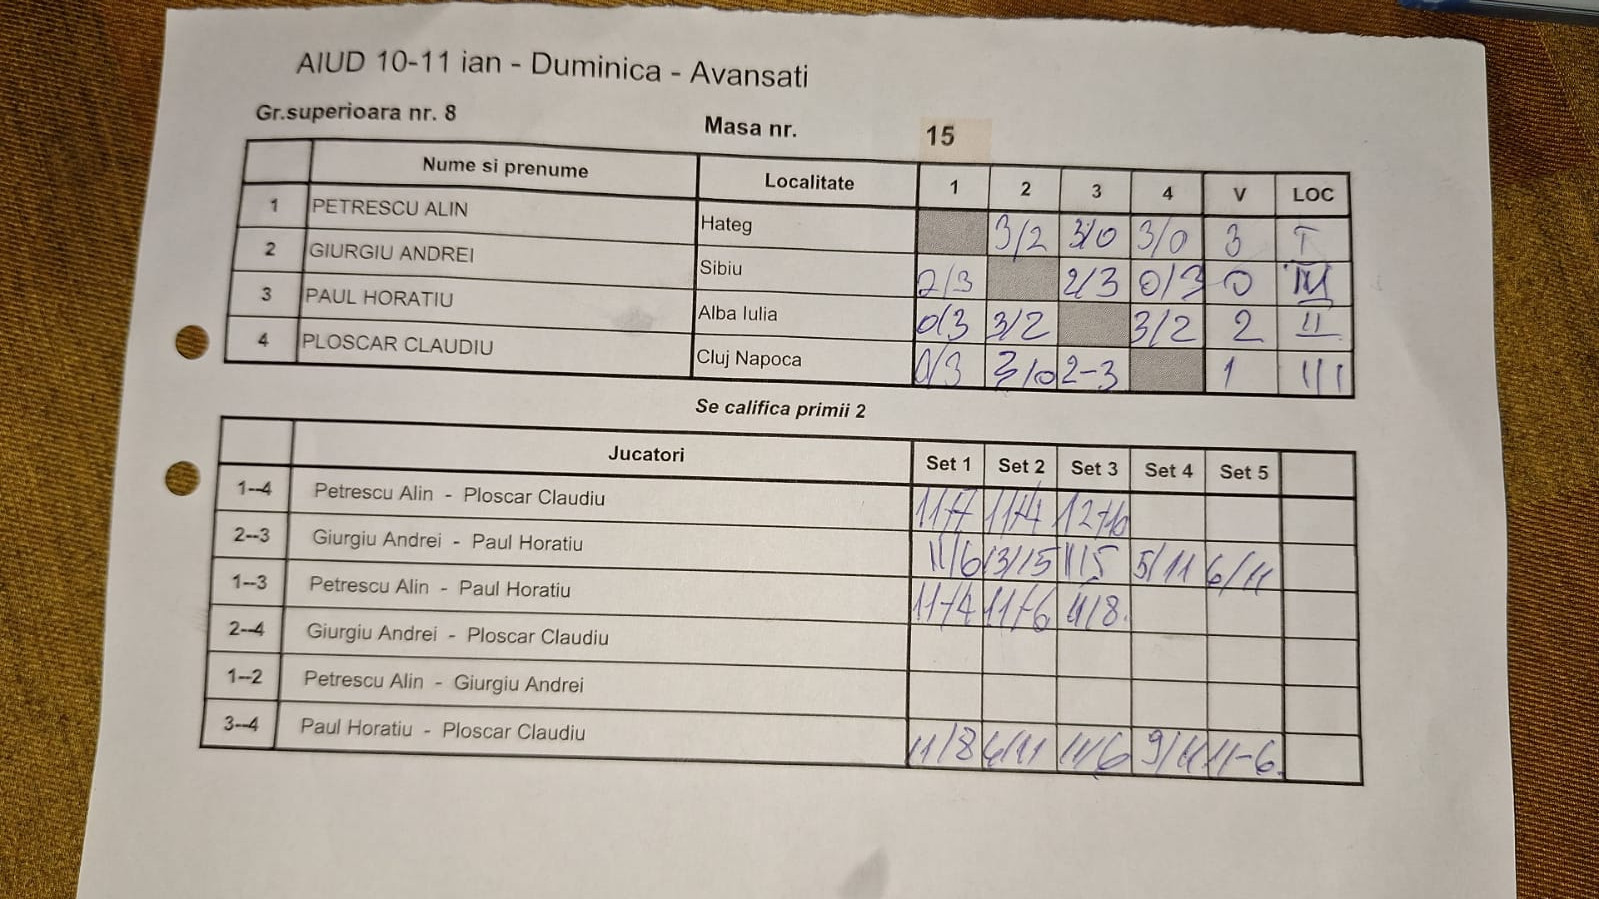 AIUD 10-11 ian - Duminica - Avansati
Gr.superioara nr. 8 Masa nr. 15
Nume si prenume Localitate 1 2 3 4 V LOC
1 PETRESCU ALIN Hateg 3/2 3/0 3/0 3 I
2 GIURGIU ANDREI Sibiu 2/3 2/3 0/3 0 IV
3 PAUL HORATIU Alba Iulia 0/3 3/2 3/2 2 II
4 PLOSCAR CLAUDIU Cluj Napoca 0/3 3/0 2-3 1 III
Se califica primii 2
Jucatori Set 1 Set 2 Set 3 Set 4 Set 5
1--4 Petrescu Alin - Ploscar Claudiu 11-7 11-4 12-10
2--3 Giurgiu Andrei - Paul Horatiu 11/6 13/15 11/5 5/11 6/11
1--3 Petrescu Alin - Paul Horatiu 11-4 11-6 11/8
2--4 Giurgiu Andrei - Ploscar Claudiu
1--2 Petrescu Alin - Giurgiu Andrei
3--4 Paul Horatiu - Ploscar Claudiu 11/8 6/11 11/6 9/11 11-6